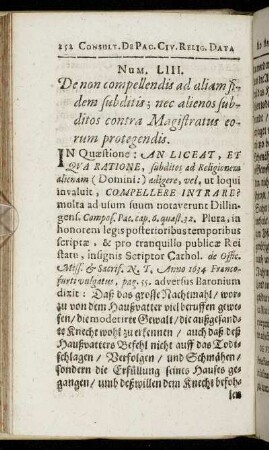 252 CONSULT. DE PAC. CIV. RELIG. DATA
NUM. LIII.
De non compellendis ad aliam fi-
dem subditis; nec alienos sub-
ditos contra Magistratus eo-
rum protegendis.
IN Quæstione: AN LICEAT, ET
QVA RATIONE, subditos ad Religionem
alienam (Domini:) adigere, vel, ut loqui
invaluit, COMPELLERE INTRARE?
multa ad usum suum notaverunt Dillin-
gens. Compos. Pac. cap. 6. quæst. 32. Plura, in
honorem legis posterioribus temporibus
scriptæ, & pro tranquillo publicæ Rei
statu, insignis Scriptor Cathol. de Offic.
Miss. & Sacrif. N. T. Anno 1634 Franco-
furti vulgatus, pag. 55. adversus Baronium
dixit: Daß das grosse Nachtmahl/ wor-
zu von dem Haußvatter viel beruffen gewe-
sen/ die moderirte Gewalt/ die außgesand-
te Knecht wohl zu erkennen/ auch daß deß
Haußvatters Befehl nicht auff das Todt-
schlagen/ Verfolgen/ und Schmähen/
sondern die Erfüllung seines Hauses ge-
gangen/ und deßwillen dem Knecht befoh-
len